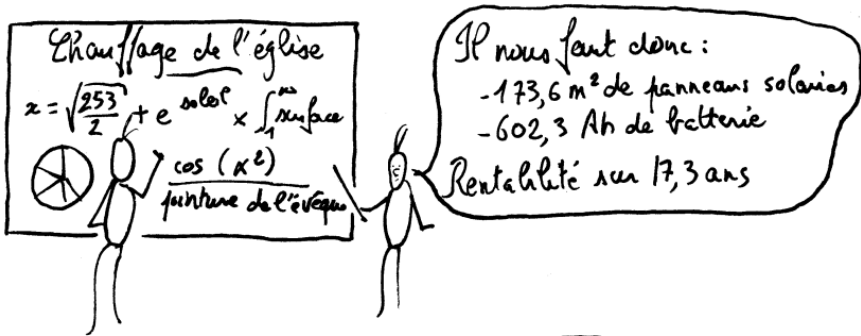 Chauffage de l'église
x = √(253/2) + e^soleil × ∫₁^∞ surface
cos (x²)
pointure de l'évêque
Il nous faut donc :
- 173,6 m² de panneaux solaires
- 602,3 Ah de batterie
Rentabilité sur 17,3 ans